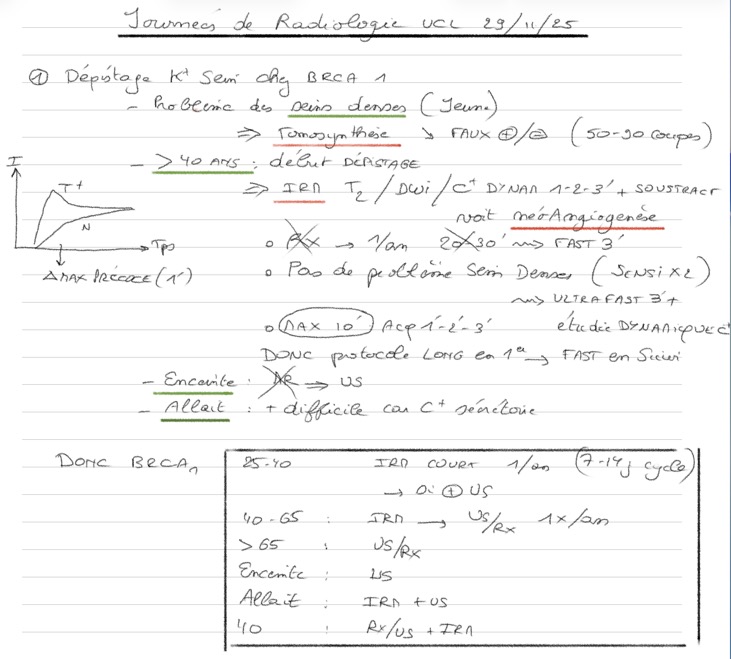 Journées de Radiologie UCL 29/11/25
① Dépistage K+ Sein chez BRCA 1
- Problème des seins denses (Jeune)
⇒ Tomosynthèse ↘ FAUX ⊕/⊖ (50-90 coupes)
- >40 ANS : début DÉPISTAGE
⇒ IRM T2 / DWI / C+ DYNAM 1-2-3' + SOUSTRACT
voit néoAngiogenèse
I T+ N Tps
Δ MAX PRÉCOCE (1')
o Rx → 1/an 20 30' ⇝ FAST 3'
o Pas de problème Sein Denses (SENSI x2)
⇝ ULTRAFAST 3' +
o MAX 10' Acq 1'-2'-3' étude DYNAMIQUE C+
DONC protocole LONG en 1er → FAST en Suivi
- Enceinte : ⇒ US
- Allait : + difficile car C+ sécrétoire
DONC BRCA1
25-40 IRM COURT 1/an (7-14j cycle)
→ Si ⊕ US
40-65 : IRM → US/Rx 1x/an
>65 : US/Rx
Enceinte : US
Allait : IRM + US
40 : Rx/US + IRM